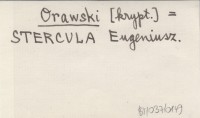 Orawski [krypt.] =
STERCULA Eugeniusz.